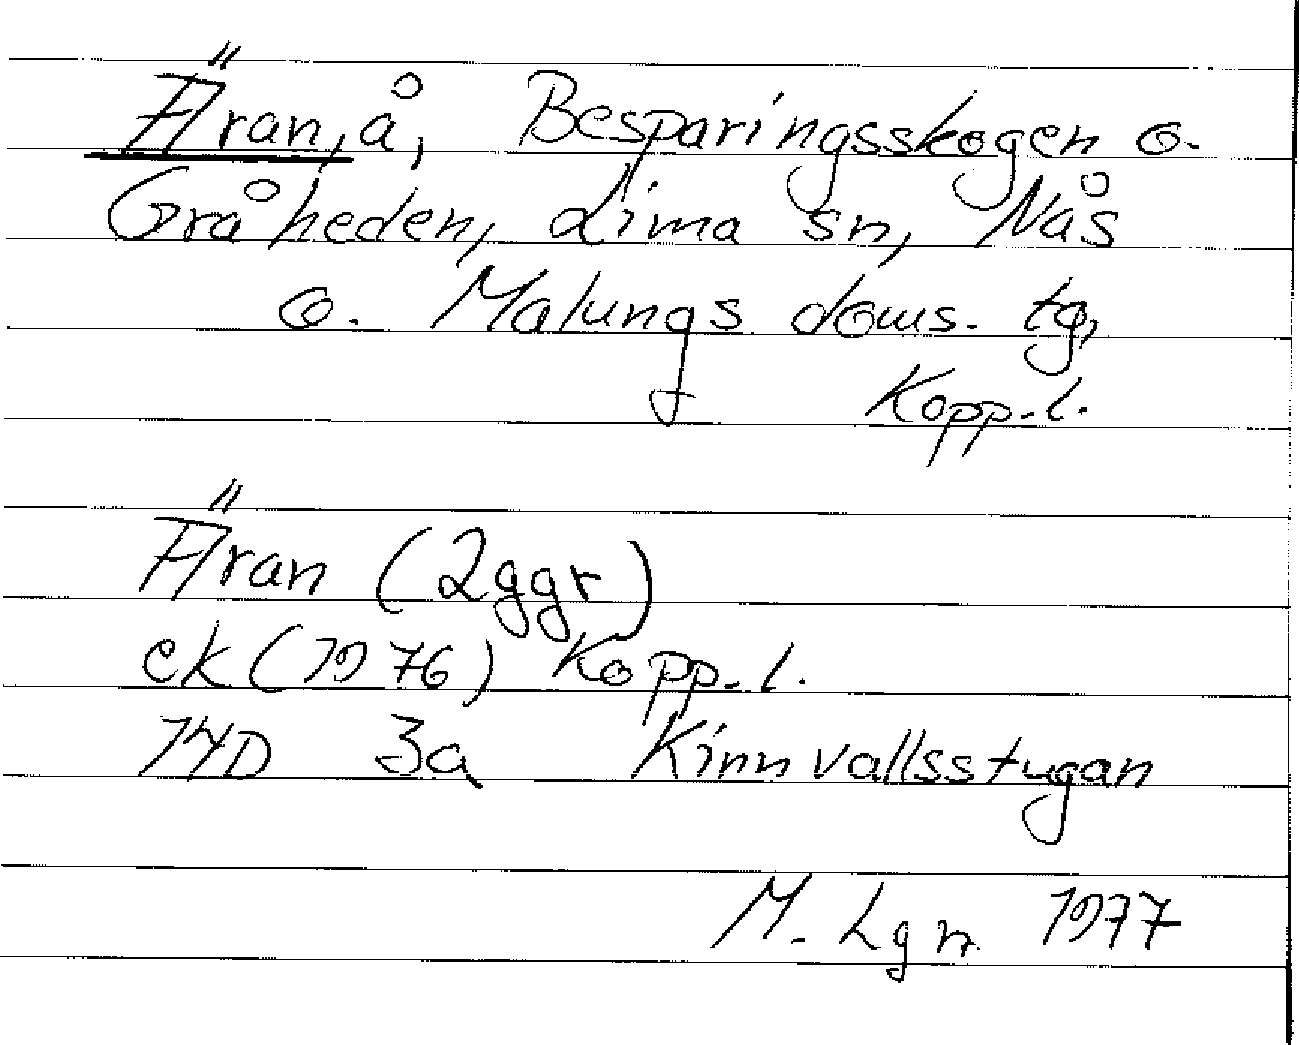 Äran, å, Besparingsskogen o.
Gråheden, Lima sn, Nås
o. Malungs doms. tg,
Kopp. l.
Äran (2ggr)
ek (1976) Kopp. l.
14D 3a Kinnvallsstugan
M. Lgn 1977